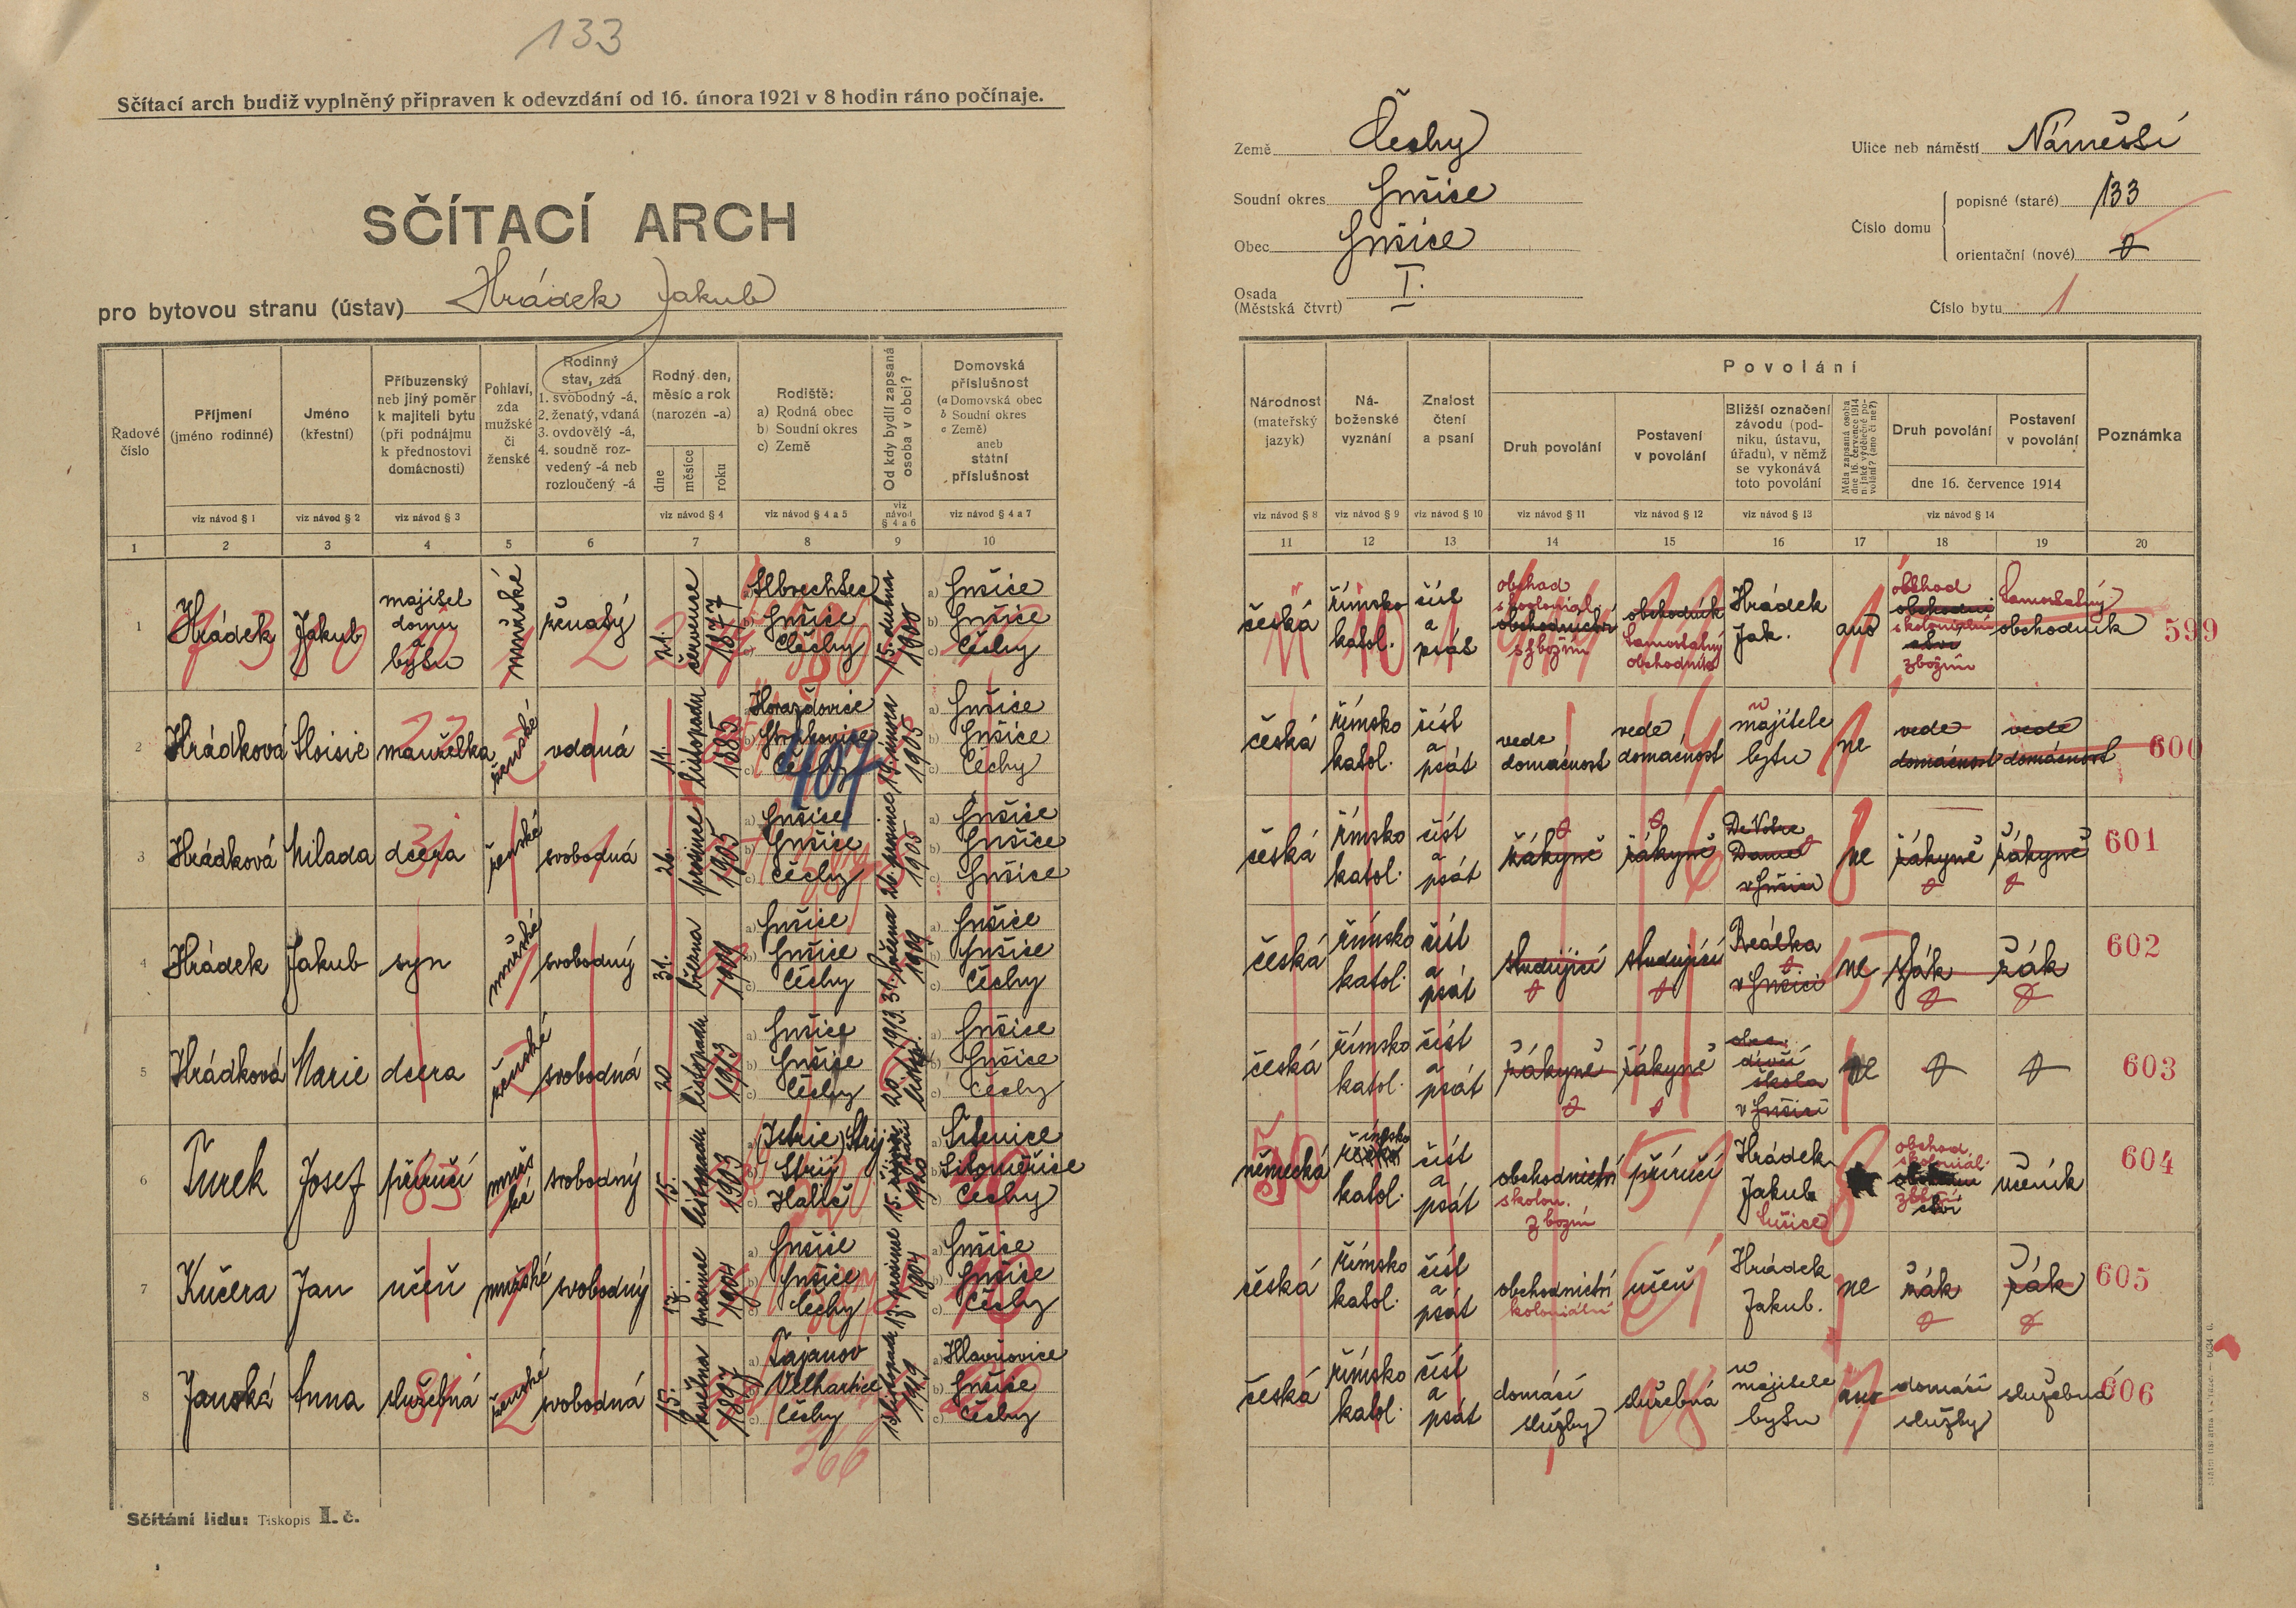 133
Sčítací arch budiž vyplněný připraven k odevzdání od 16. února 1921 v 8 hodin ráno počínaje.
SČÍTACÍ ARCH
pro bytovou stranu (ústav) Hrádek Jakub
Země Čechy
Soudní okres Sušice
Obec Sušice
Osada (Městská čtvrt) I.
Ulice neb náměstí Náměstí
Číslo domu
popisné (staré) 133
orientační (nové) 0
Číslo bytu 1
Řadové číslo
Příjmení (jméno rodinné)
Jméno (křestní)
Příbuzenský neb jiný poměr k majiteli bytu (při podnájmu k přednostovi domácnosti)
Pohlaví, zda mužské či ženské
Rodinný stav, zda 1. svobodný -á, 2. ženatý, vdaná 3. ovdovělý -á, 4. soudně rozvedený -á neb rozloučený -á
Rodný den, měsíc a rok (narozen -a)
dne měsíce roku
Rodiště: a) Rodná obec b) Soudní okres c) Země
Od kdy bydlí zapsaná osoba v obci?
Domovská příslušnost (a Domovská obec b Soudní okres c Země) aneb státní příslušnost
viz návod § 1 viz návod § 2 viz návod § 3 viz návod § 4 viz návod § 4 a 5 viz návod § 4 a 6 viz návod § 4 a 7
1 2 3 4 5 6 7 8 9 10
Národnost (mateřský jazyk)
Náboženské vyznání
Znalost čtení a psaní
Povolání
Druh povolání
Postavení v povolání
Bližší označení závodu (podniku, ústavu, úřadu), v němž se vykonává toto povolání
Měla zapsaná osoba dne 16. července 1914 nějaké výdělečné povolání? (ano či ne?)
Druh povolání
Postavení v povolání
dne 16. července 1914
Poznámka
viz návod § 8 viz návod § 9 viz návod § 10 viz návod § 11 viz návod § 12 viz návod § 13 viz návod § 14
11 12 13 14 15 16 17 18 19 20
1 Hrádek Jakub majitel domu a bytu mužské ženatý 21. července 1877 a) Albrechtec b) Sušice c) Čechy 15. dubna 1900 a) Sušice b) Sušice c) Čechy
česká římsko katol. číst a psát obchod s kolonial. obchodnictví s zbožím obchodník Samostatný obchodník Hrádek Jak. ano obchod s koloniálním zbožím Samostatný obchodník 599
2 Hrádková Aloisie manželka ženské vdaná 11. listopadu 1885 a) Horažďovice b) Strakonice c) Čechy 407 14. února 1905 a) Sušice b) Sušice c) Čechy
česká římsko katol. číst a psát vede domácnost vede domácnost u majitele bytu ne vede domácnost vede domácnost 600
3 Hrádková Milada dcera ženské svobodná 26. prosince 1905 a) Sušice b) Sušice c) Čechy 26. prosince 1905 a) Sušice b) Sušice c) Sušice
česká římsko katol. číst a psát žákyně žákyně v Sušici ne žákyně žákyně 601
4 Hrádek Jakub syn mužské svobodný 31. března 1909 a) Sušice b) Sušice c) Čechy 31. března 1909 a) Sušice b) Sušice c) Čechy
česká římsko katol. číst a psát studující studující Reálka v Sušici ne žák žák 602
5 Hrádková Marie dcera ženské svobodná 20 listopadu 1913 a) Sušice b) Sušice c) Čechy 20 listop. 1913. a) Sušice b) Sušice c) Čechy
česká římsko katol. číst a psát žákyně žákyně obec. dívčí škola v Sušici ne 0 0 603
6 Turek Josef příručí mužské svobodný 15. listopadu 1903 a) (Istrie) Strij b) Strij c) Halič 15. října 1920 b) Litoměřice c) Čechy
německá římsko katol. číst a psát obchodnictví s kolon. zbožím příručí Hrádek Jakub Sušice obchod s kolonial. zbožím učeník 604
7 Kučera Jan učeň mužské svobodný 17. prosince 1904 a) Sušice b) Sušice c) Čechy 17. prosince 1904 a) Sušice b) Sušice c) Čechy
česká římsko katol. číst a psát obchodnictví koloniální učeň Hrádek Jakub. ne žák žák 605
8 Janská Anna služebná ženské svobodná 15. května 1897 a) Tajanov b) Velhartice c) Čechy listopada 1919 a) Hlavňovice b) Sušice c) Čechy
366
česká římsko katol. číst a psát domácí služby služebná u majitele bytu ano domácí služby služebná 606
Sčítání lidu: Tiskopis I. č.